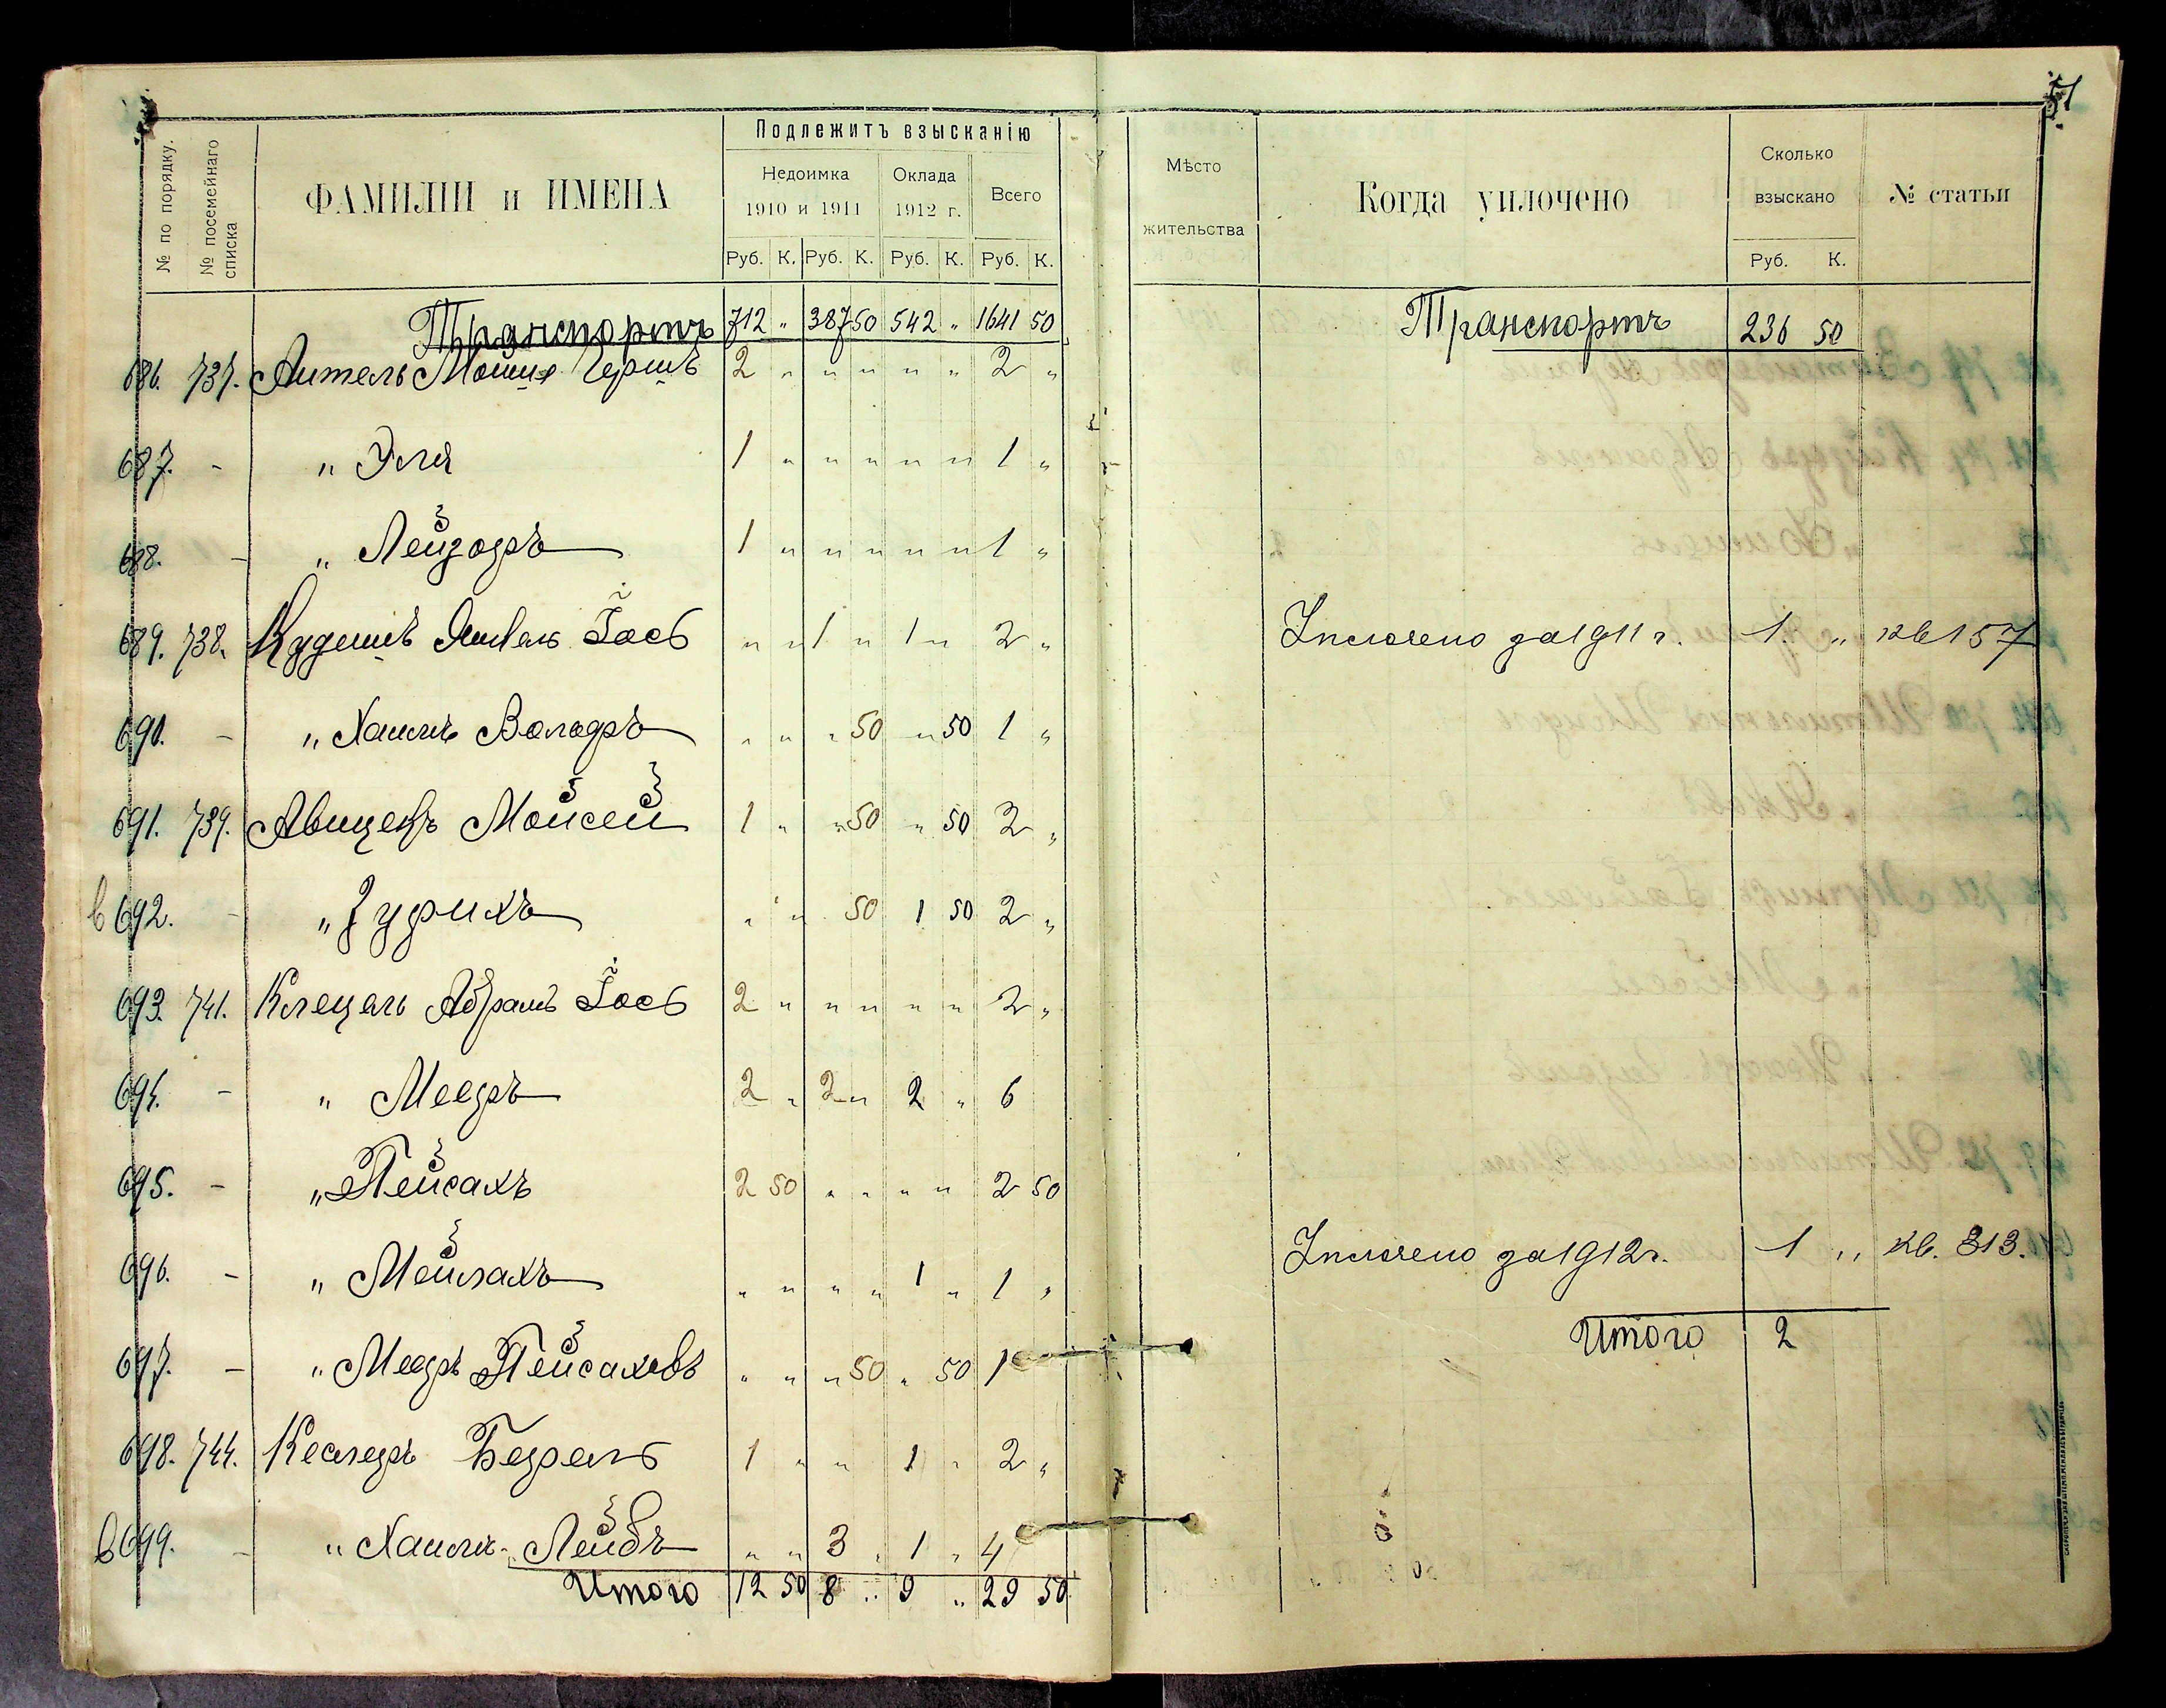 51
№ по порядку.
№ посемейнаго списка
ФАМИЛІИ и ИМЕНА
Подлежитъ взысканію
Недоимка 1910 и 1911
Оклада 1912 г.
Всего
Руб. К. Руб. К. Руб. К. Руб. К.
Транспортъ 712 „ 387 50 542 „ 1641 50
686. 737. Антель Мошка Гершъ 2 „ „ „ „ „ 2 „
687. - „ Эля 1 „ „ „ „ „ 1 „
688. - „ Лейзоръ 1 „ „ „ „ „ 1 „
689. 738. Кудишъ Янкель Іось „ „ 1 „ 1 „ 2 „
690. - „ Хаимъ Вольфъ „ „ „ 50 „ 50 1 „
691. 739. Авицеръ Мойсей 1 „ „ 50 „ 50 2 „
в 692. - „ Зурихъ „ „ 50 1 50 2 „
693. 741. Клецель Абрамъ Іось 2 „ „ „ „ „ 2 „
694. - „ Мееръ 2 „ 2 „ 2 „ 6
695. - „ Пейсахъ 2 50 „ „ „ „ 2 50
696. - „ Мейлахъ „ „ „ „ 1 „ 1 „
697. - „ Мееръ Пейсаховъ „ „ „ 50 „ 50 1
698. 744. Кеслеръ Берель 1 „ „ 1 „ 2 „
в 699. - „ Хаимъ-Лейбъ „ „ 3 „ 1 „ 4
Итого 12 50 8 „ 9 „ 29 50
Мѣсто жительства
Когда уплочено
Сколько взыскано
Руб. К.
№ статьи
Транспортъ 236 50
Уплочено за 1911 г. 1. „ кв 157
Уплочено за 1912 г. 1 „ кв. 313.
Итого 2